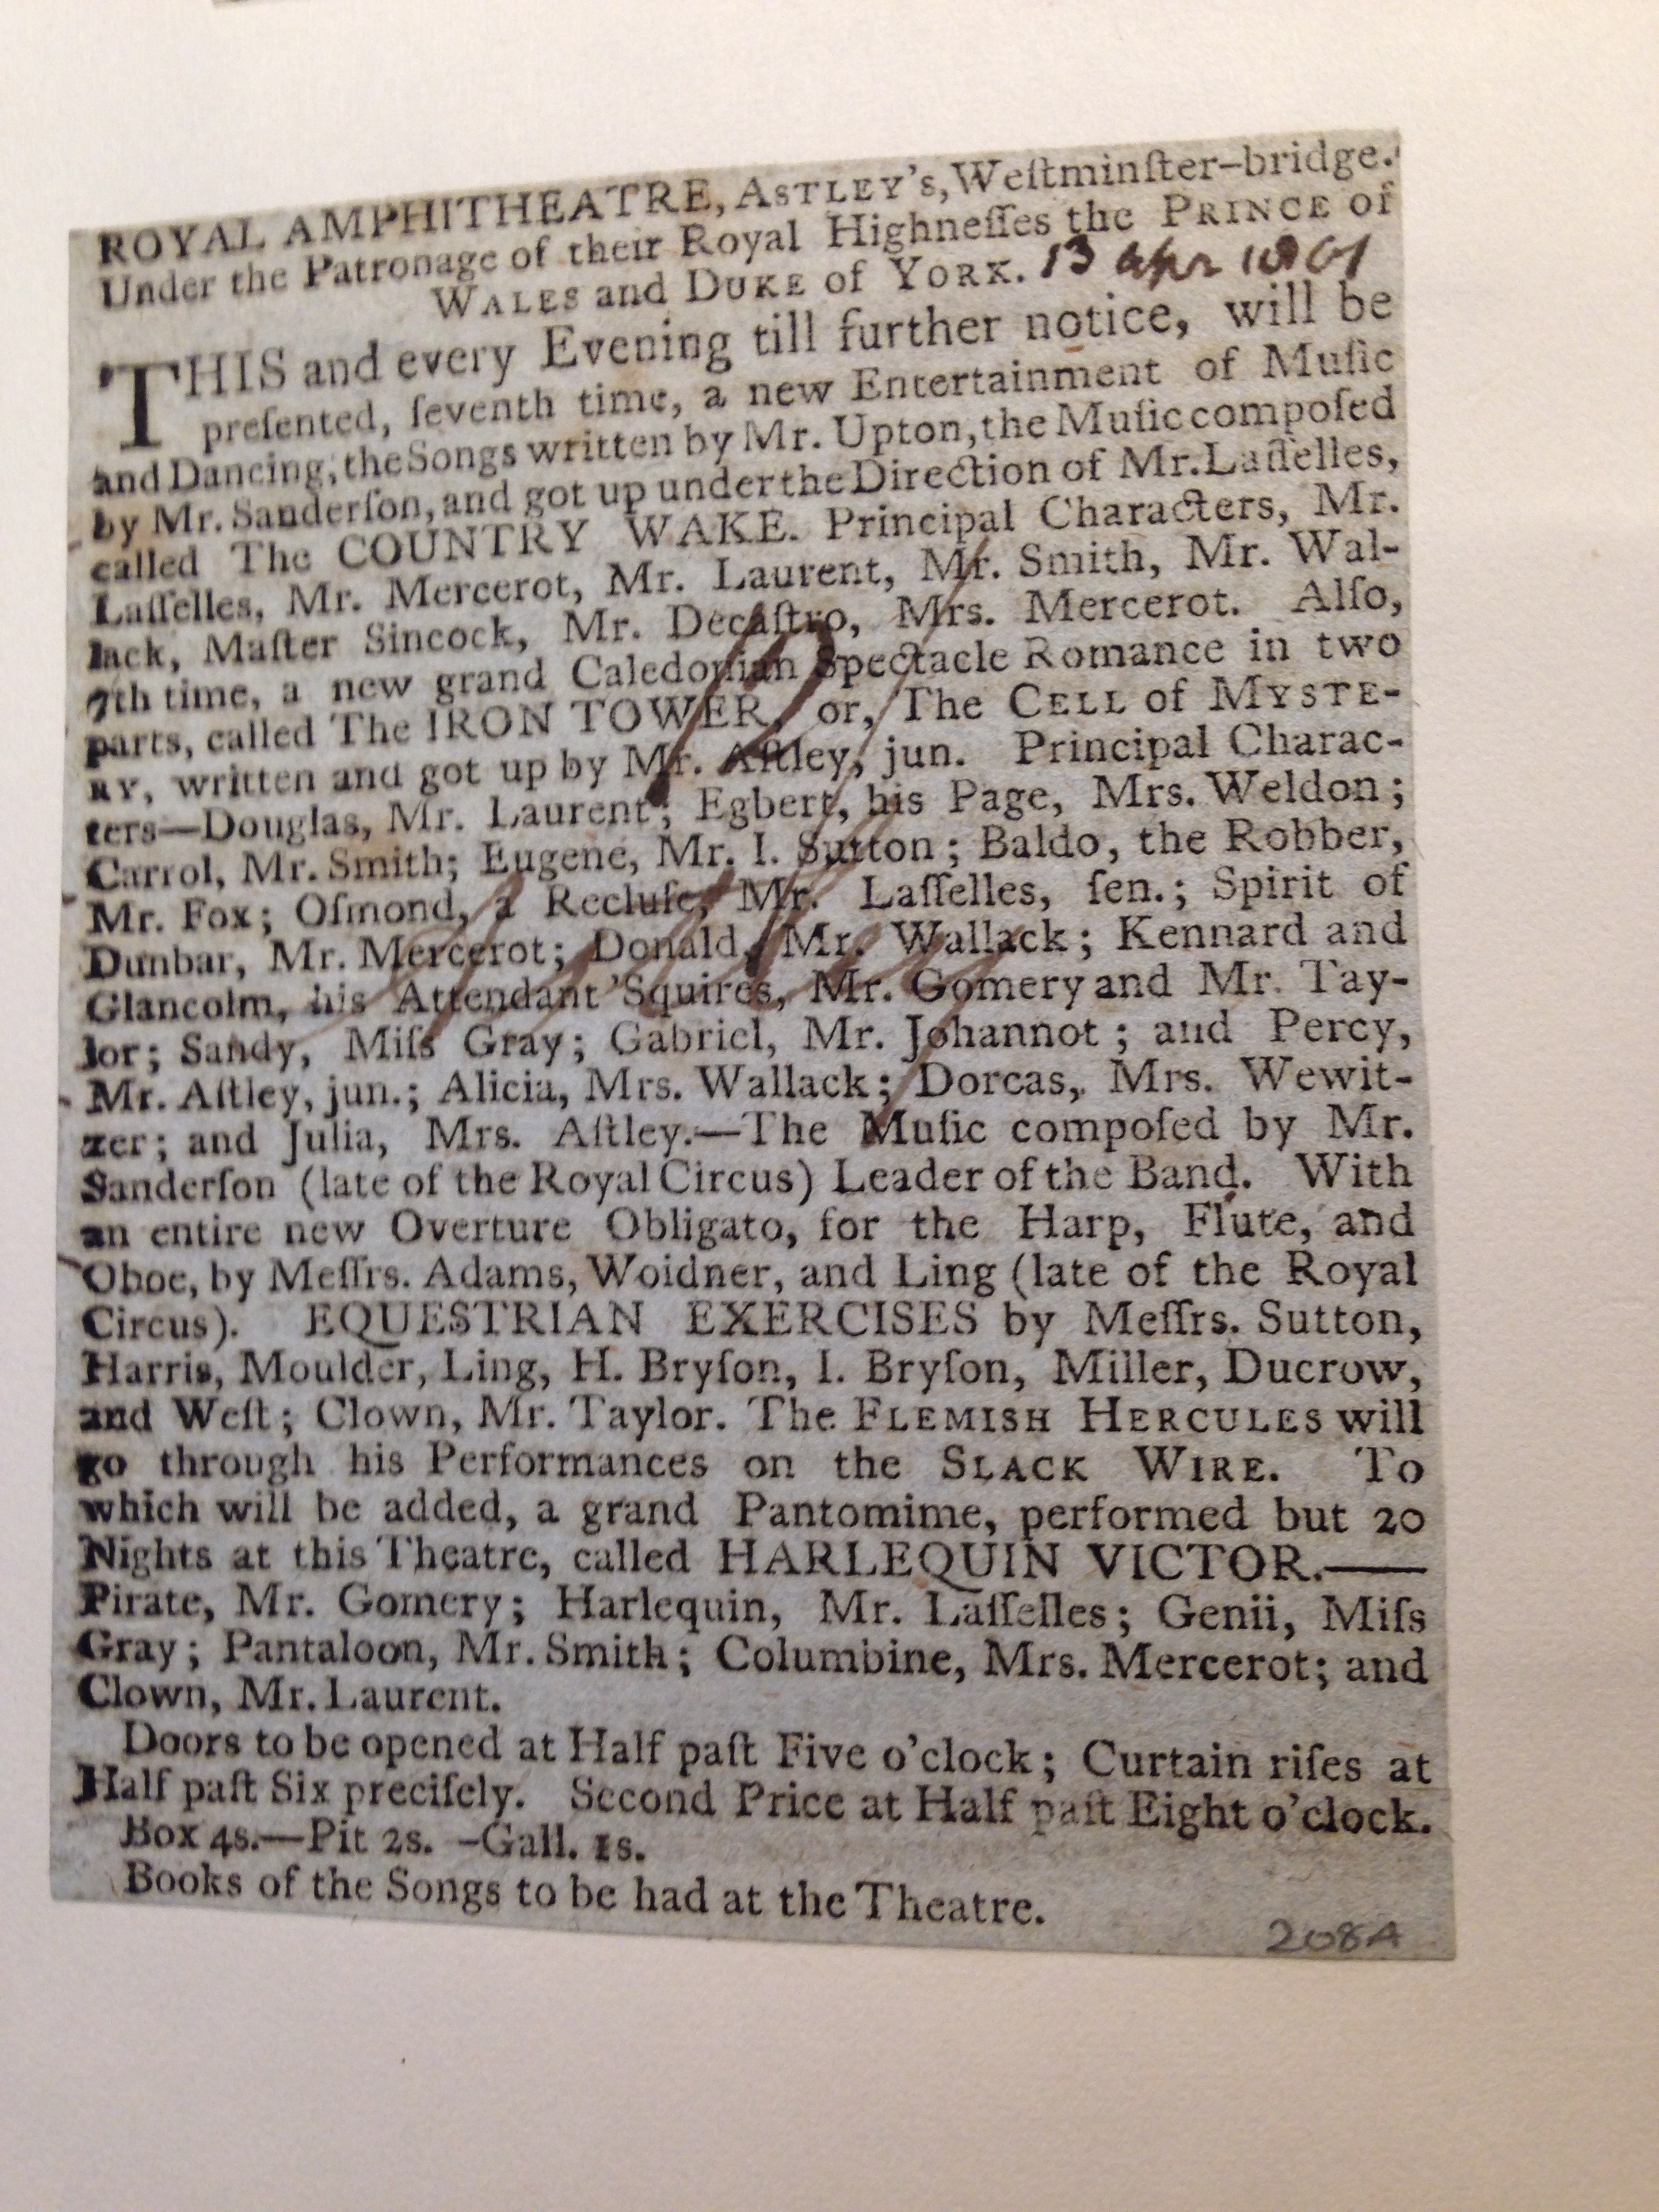 ROYAL AMPHITHEATRE, ASTLEY's, Weſtminſter-bridge.
Under the Patronage of their Royal Highneſſes the PRINCE of
WALES and DUKE of YORK. 13 apr 1801
THIS and every Evening till further notice, will be
preſented, ſeventh time, a new Entertainment of Muſic
and Dancing, the Songs written by Mr. Upton, the Muſic compoſed
by Mr. Sanderſon, and got up under the Direction of Mr. Laſſelles,
called The COUNTRY WAKE. Principal Characters, Mr.
Laſſelles, Mr. Mercerot, Mr. Laurent, Mr. Smith, Mr. Wal-
lack, Maſter Sincock, Mr. Decaſtro, Mrs. Mercerot. Alſo,
7th time, a new grand Caledonian Spectacle Romance in two
parts, called The IRON TOWER, or, The CELL of MYSTE-
RY, written and got up by Mr. Aſtley, jun. Principal Charac-
ters—Douglas, Mr. Laurent; Egbert, his Page, Mrs. Weldon;
Carrol, Mr. Smith; Eugene, Mr. I. Sutton; Baldo, the Robber,
Mr. Fox; Oſmond, a Recluſe, Mr. Laſſelles, ſen.; Spirit of
Dunbar, Mr. Mercerot; Donald, Mr. Wallack; Kennard and
Glancolm, his Attendant 'Squires, Mr. Gomery and Mr. Tay-
lor; Sandy, Miſs Gray; Gabriel, Mr. Johannot; and Percy,
Mr. Aſtley, jun.; Alicia, Mrs. Wallack; Dorcas, Mrs. Wewit-
zer; and Julia, Mrs. Aſtley.—The Muſic compoſed by Mr.
Sanderſon (late of the Royal Circus) Leader of the Band. With
an entire new Overture Obligato, for the Harp, Flute, and
Oboe, by Meſſrs. Adams, Woidner, and Ling (late of the Royal
Circus). EQUESTRIAN EXERCISES by Meſſrs. Sutton,
Harris, Moulder, Ling, H. Bryſon, I. Bryſon, Miller, Ducrow,
and Weſt; Clown, Mr. Taylor. The FLEMISH HERCULES will
go through his Performances on the SLACK WIRE. To
which will be added, a grand Pantomime, performed but 20
Nights at this Theatre, called HARLEQUIN VICTOR.——
Pirate, Mr. Gomery; Harlequin, Mr. Laſſelles; Genii, Miſs
Gray; Pantaloon, Mr. Smith; Columbine, Mrs. Mercerot; and
Clown, Mr. Laurent.
Doors to be opened at Half paſt Five o'clock; Curtain riſes at
Half paſt Six preciſely. Second Price at Half paſt Eight o'clock.
Box 4s.—Pit 2s. —Gall. 1s.
Books of the Songs to be had at the Theatre.
208A